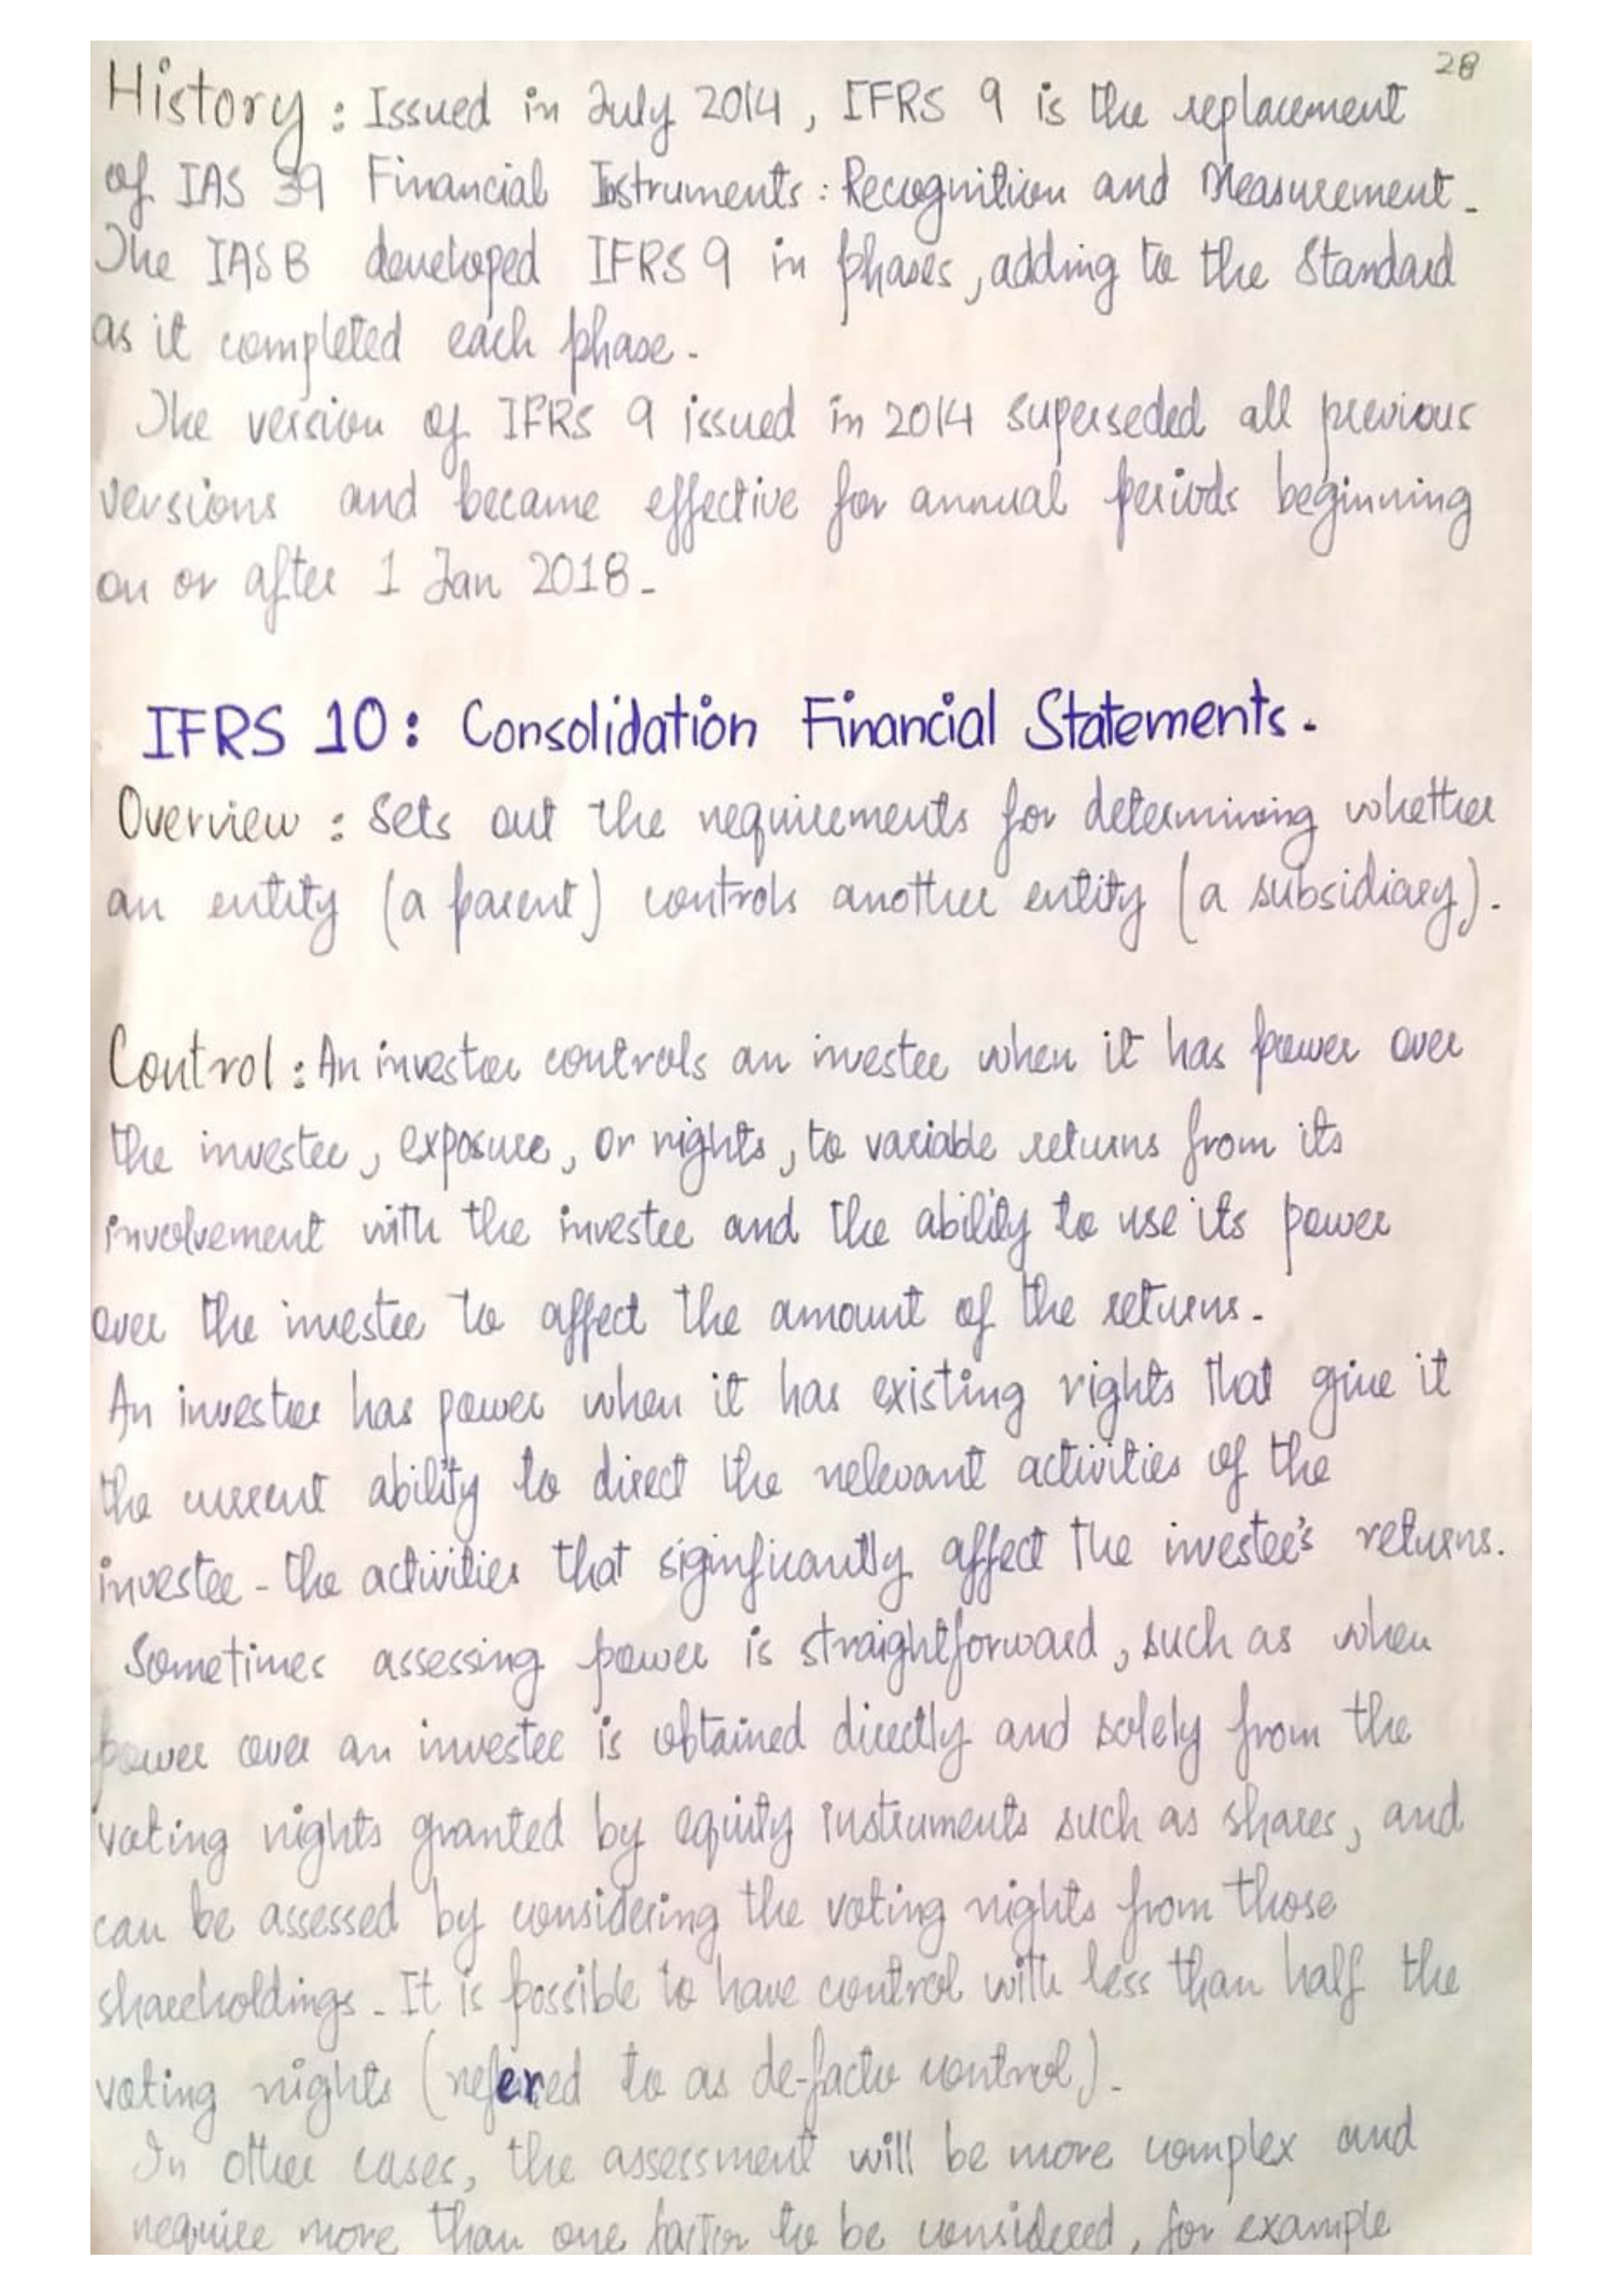 28
History : Issued in July 2014, IFRS 9 is the replacement
of IAS 39 Financial Instruments : Recognition and Measurement.
The IASB developed IFRS 9 in phases, adding to the Standard
as it completed each phase.
The version of IFRS 9 issued in 2014 superseded all previous
versions and became effective for annual periods beginning
on or after 1 Jan 2018.
IFRS 10: Consolidation Financial Statements.
Overview : Sets out the requirements for determining whether
an entity (a parent) controls another entity (a subsidiary).
Control : An investor controls an investee when it has power over
the investee, exposure, or rights, to variable returns from its
involvement with the investee and the ability to use its power
over the investee to affect the amount of the returns.
An investor has power when it has existing rights that give it
the current ability to direct the relevant activities of the
investee - the activities that siginficantly affect the investee's returns.
Sometimes assessing power is straightforward, such as when
power over an investee is obtained directly and solely from the
voting rights granted by equity instruments such as shares, and
can be assessed by considering the voting rights from those
shareholdings. It is possible to have control with less than half the
voting rights (refered to as de-facto control).
In other cases, the assessment will be more complex and
require more than one factor to be considered, for example